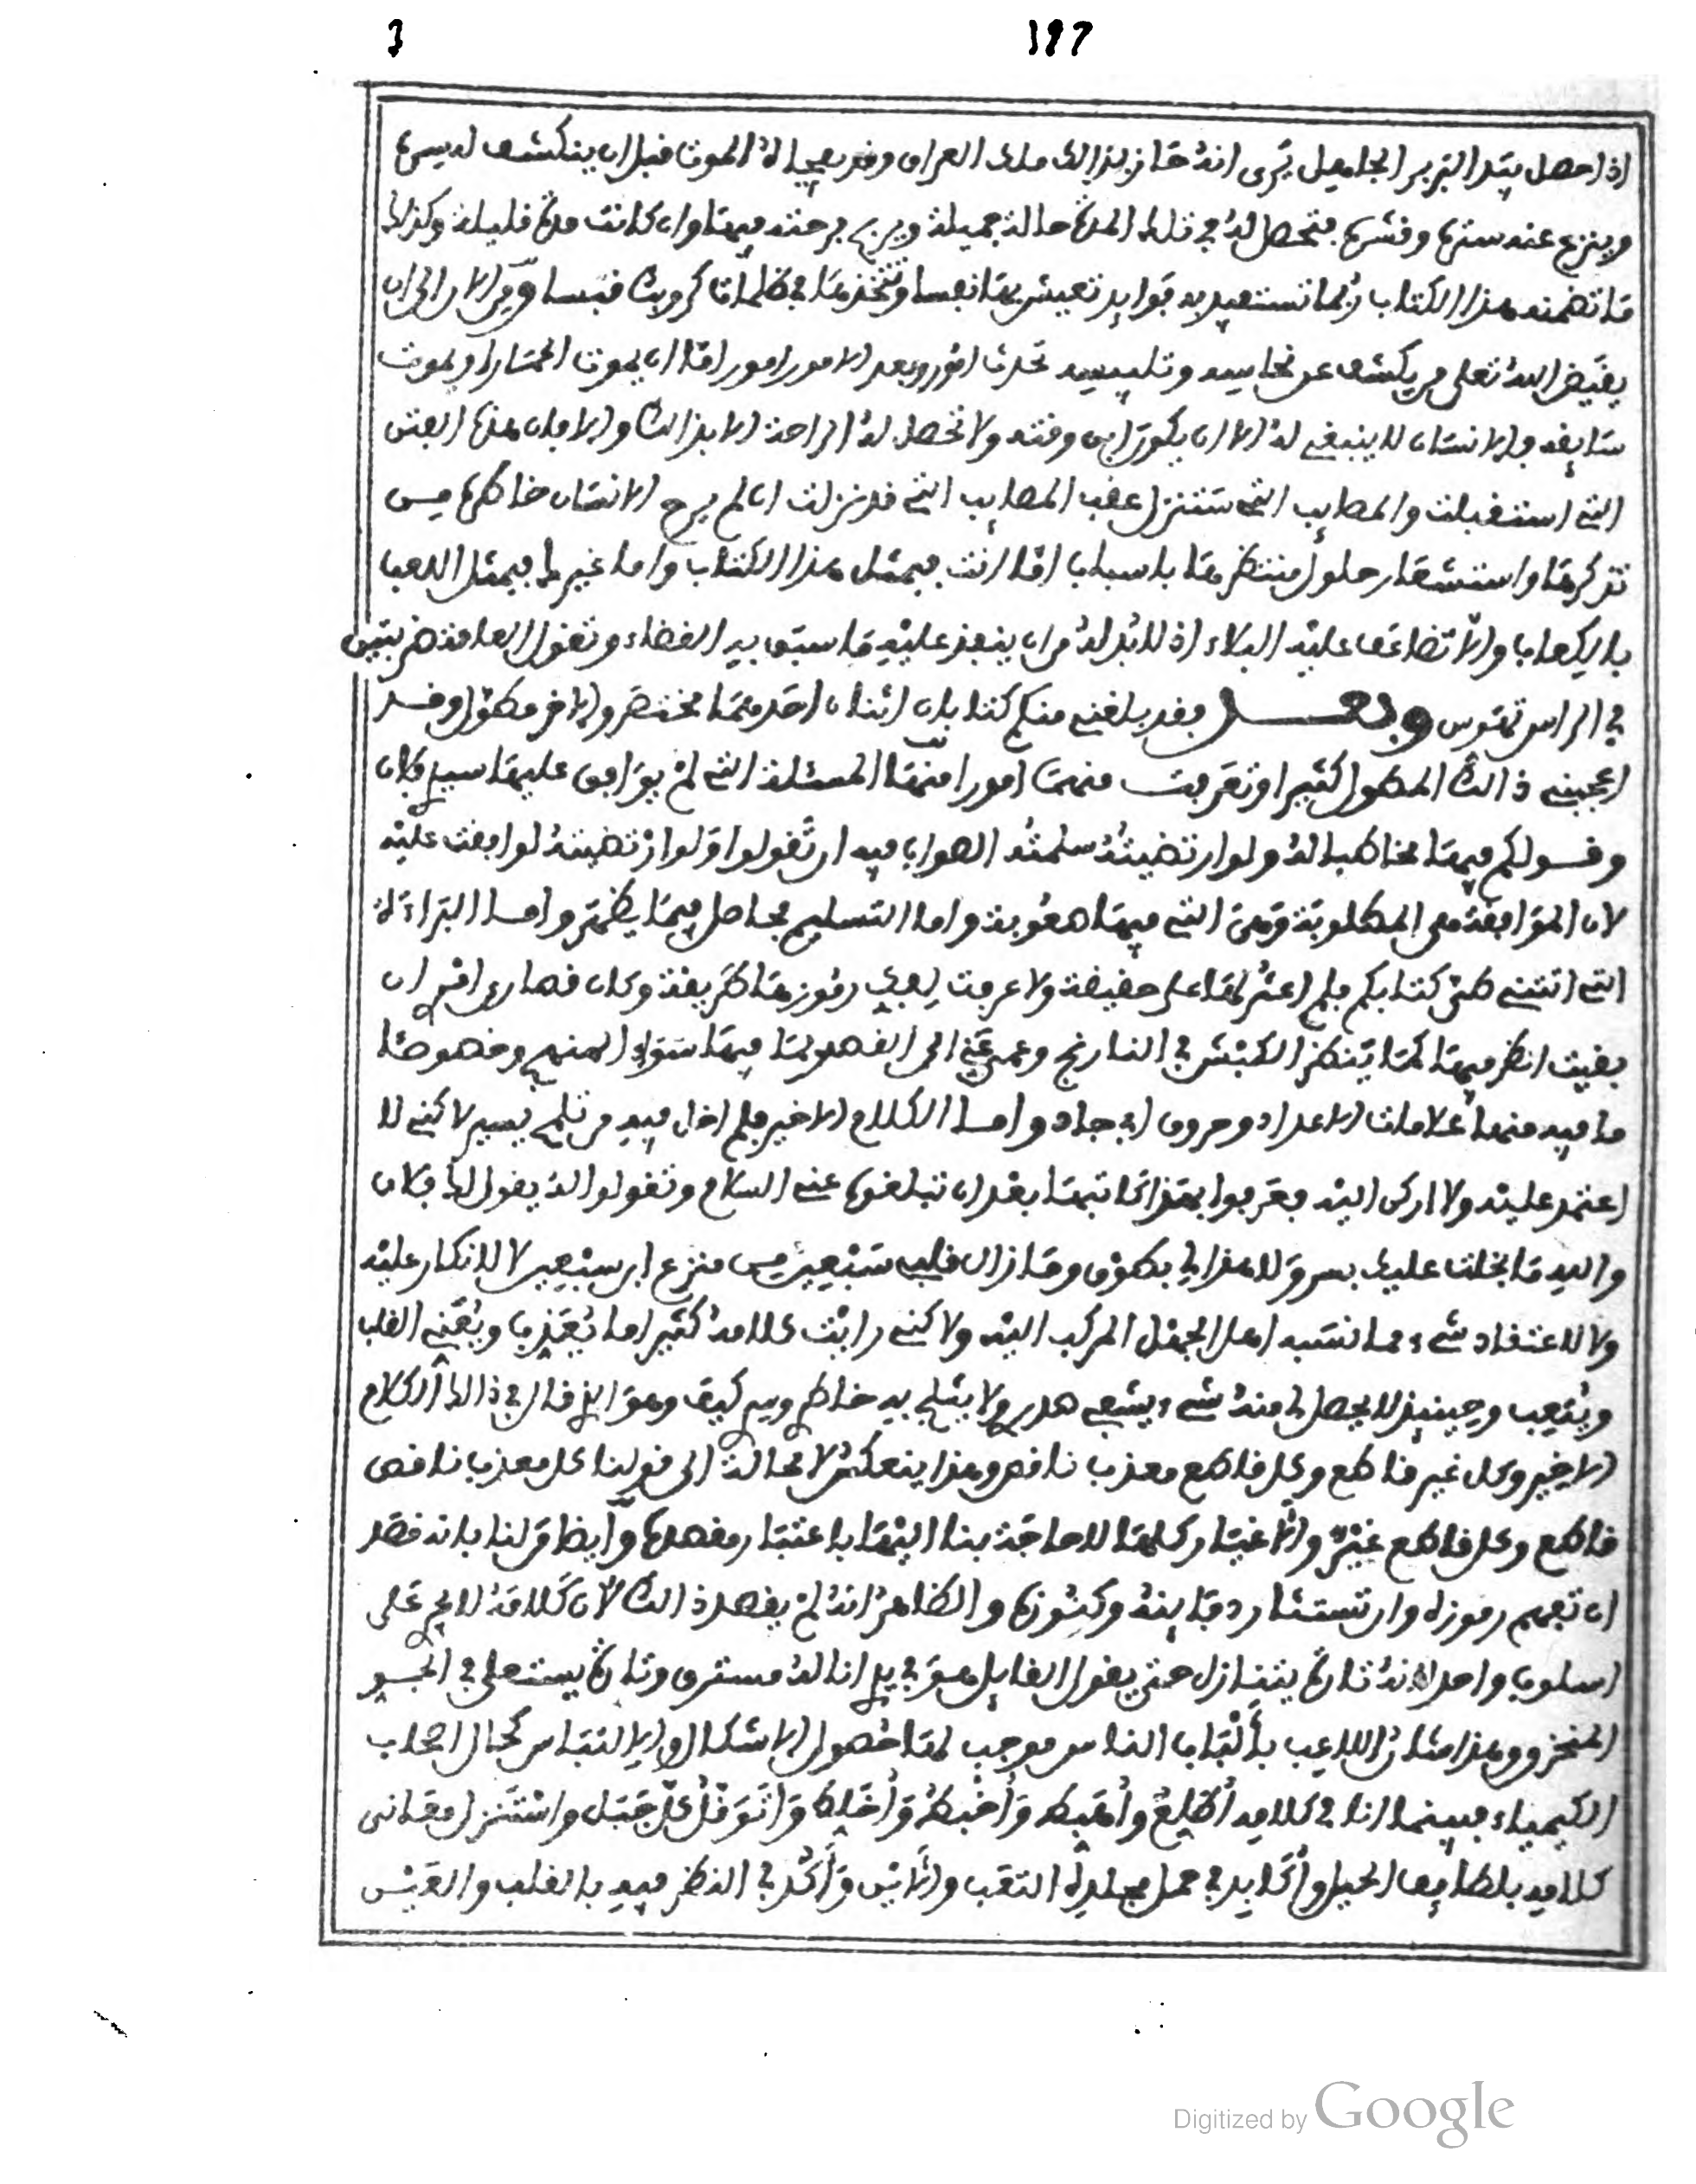 3 197
اذا حصل بيد البربر الجاهل يرى انه حاز بذالك ملك العراق وقد يعجله الموت قبل ان ينكشف له سرها
وينزع عنه سترها وقشرها فتحصل له في تلك المدة حالة جميلة ويربح فرحته فيها وان كانت مدة قليلة وكذلك
ما تضمنه هذا الكتاب ربما تستفيد به فوايد تعيش بها نفسا وتتخذها في ظلمات كروبك قبسا ومن الان الى ان
يقيض الله تعلى من يكشف عن نحاسه وتلبيسه تحدث امور وبعد الامور امور اما ان يموت الحمار او يموت
سايقه والانسان لا ينبغي له الا ان يكون ابن وقته ولا تحصل له الراحة الا بذالك والا فان هذه الفتن
التي استقبلت والمصايب التي ستنزل عقب المصايب التي قد نزلت ان لم يرح الانسان خاطره من
تذكرها واستشعار حلول منتظرها باسباب اما انت فبمثل هذا الكتاب واما غيرك فبمثل اللعب
بالكعاب والا تضاعف عليه البلاء اذ لا بد له من ان ينفذ عليه ما سبق به القضاء وتقول العامة ضربتين
في الراس توس وبعد فقد بلغني منكم كتابان اثنان احدهما مختصر والاخر مطول وقد
اعجبني ذالك المطول كثيرا وتعرفت منه امورا منها المسئلة التي لم يوافق عليها سيدي فلان
وقولكم فيها مخاطبا له ولو ارتضيته سلمته الصواب فيه ان تقولوا ولو ارتضيته لوافقت عليه
لان الموافقة هي المطلوبة وهي التي فيها صعوبة واما التسليم فحاصل فيما يظهر واما البراءة
التي اتتني طي كتابكم فلم اعثر لها على حقيقة ولا عرفت لفك رموزها طريقة وكان قصارى امري ان
بقيت انظر فيها كما ينظر الكبش في النارنج وعمي عني الى القصد بما فيها سواء المنهج وخصوصا
ما فيه منها علامات الاعداد وحروف ابي جاد واما الكلام الاخير فلم اخل فيه من ثلج يسير لاكني لا
اعتمد عليه ولا اركن اليه فعرفوا بهذا كاتبها بعد ان تبلغوه عني السلام وتقولوا له يقول لك فلان
والله ما بخلت عليك بسر ولا عذابي بطوق وما زال قلب سبعين من منزع ابن سبعين لا للانكار عليه
ولا للاعتقاد شيء مما نسبه اهل الجهل المركب اليه ولاكني رايت كلامه كثيرا ما يعذب ويعني القلب
ويتعب وحينيذ لا يحصل لي منه شيء يشفي صدري ولا يثلج به خاطري وسري كيف وهو الذي قال في ذالك الكلام
الاخير وكل غير قاطع وكل قاطع معذب ناقص وهذا ينعكس لا محالة الى قولنا كل معذب ناقص
قاطع وكل قاطع غير والاغيار كلها لا حاجة بنا اليها باعتبار مقصده وايضا فرلنا بانه قصد
ان تفهم رموزه وان تستثار دفاينه وكنوزه والظاهر انه لم يقصد ذالك لان كلامه لا يجري على
اسلوب واحد لانه تارة يتنازل حتى يقول القايل هو في يدي انا له مسترق وتارة يستعلي في الجو
المنخرق وهذا مثل اللعب بألباب الناس موجب لها حصول الاشكال والالتباس كحال اصحاب
الكيمياء فبينما انا في كلامه أطلع وأهبط وأخبط وأخلط وأتوقل كل جبل واستنزل معانى
كلامه بلطايف الحيل وأكابد في حمل مجلده التعب والاين وأكد في النظر فيه بالقلب والعين